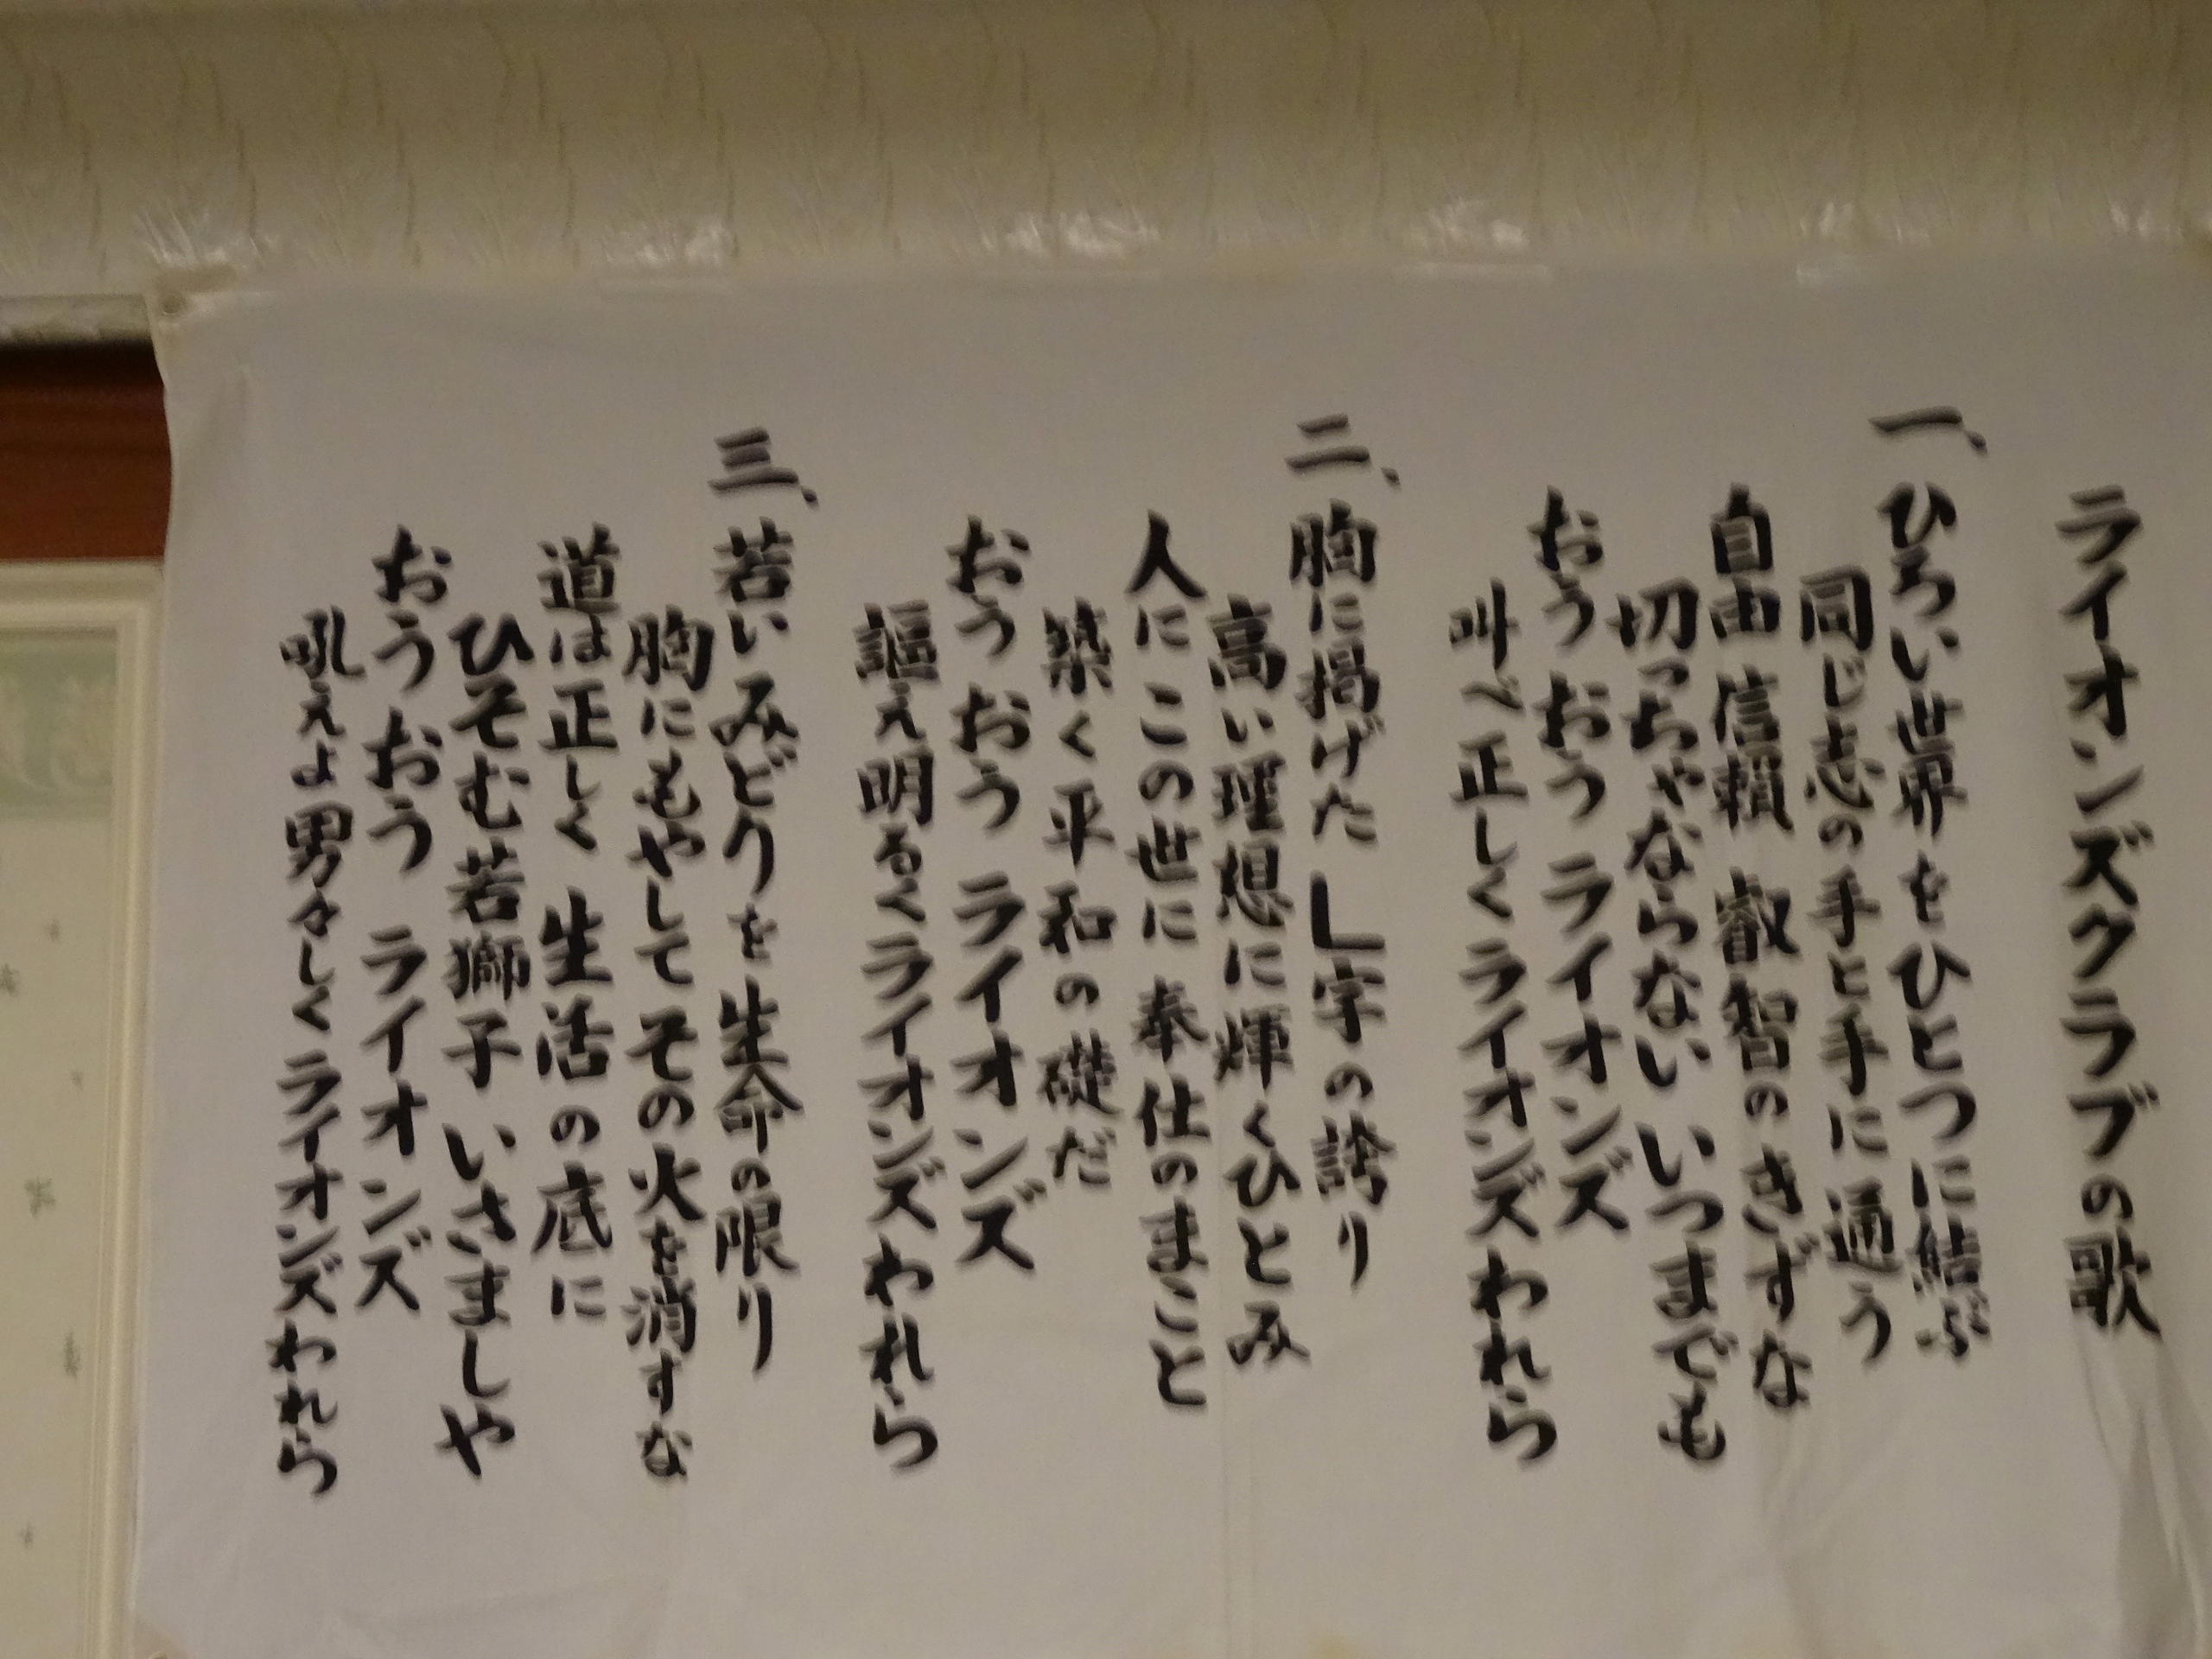 ライオンズクラブの歌
一、ひろい世界をひとつに結ぶ
同じ志の手と手に通う
自由 信頼 叡智のきずな
切っちゃならない いつまでも
おう おう ライオンズ
叫べ正しくライオンズわれら
二、胸に掲げた L字の誇り
高い理想に輝くひとみ
人に この世に 奉仕のまこと
築く平和の礎だ
おう おう ライオンズ
謳え明るくライオンズわれら
三、若いみどりを生命の限り
胸にもやして その火を消すな
道は正しく 生活の底に
ひそむ若獅子 いさましや
おう おう ライオンズ
吼えよ男々しくライオンズわれら